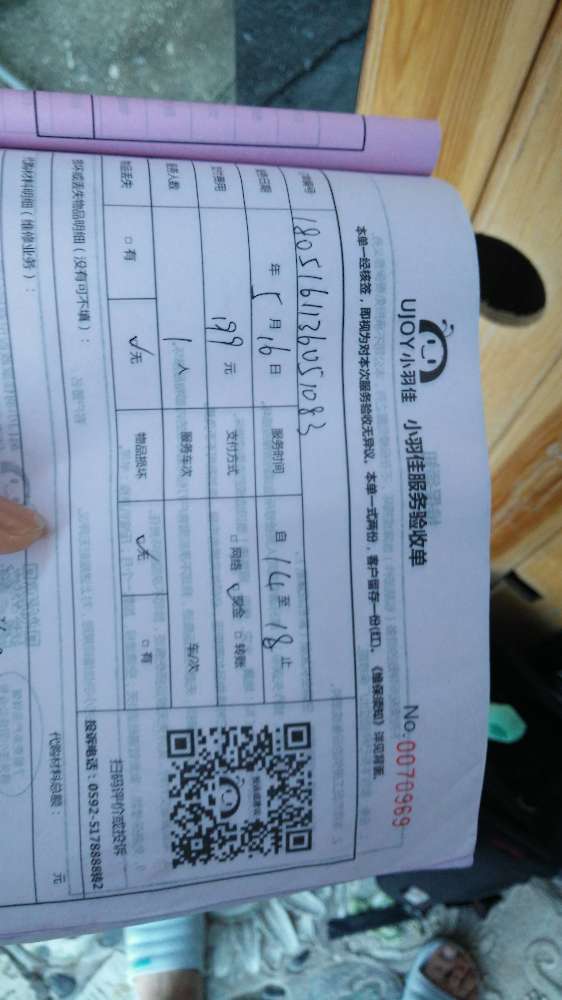 UJOY小羽佳 小羽佳服务验收单 No:0070969
本单一经核签，即视为对本次服务验收无异议。本单一式两份，客户留存一份(红)。《维保须知》详见背面。
编号 1805161136051083
日期 年 5月16日 服务时间 自 14 至 18 止
费用 199 元 支付方式 □网络 ☑现金 □转账
人数 1 人 服务车次 车/次
物品丢失 □有 ☑无 物品损坏 ☑无 □有
损坏或丢失物品明细（没有可不填）：
扫码评价或投诉
投诉电话：0592-5178888转2
代购材料明细（维修业务）： 代购材料总额： 元